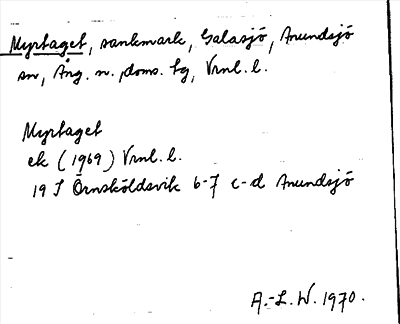 Myrtaget, sankmark, Galasjö, Anundsjö
sn, Ång. n. doms. tg, Vrnl. l.
Myrtaget
ek (1969) Vrnl. l.
19 I Örnsköldsvik 6-7 c-d Anundsjö
A.-L. W. 1970.